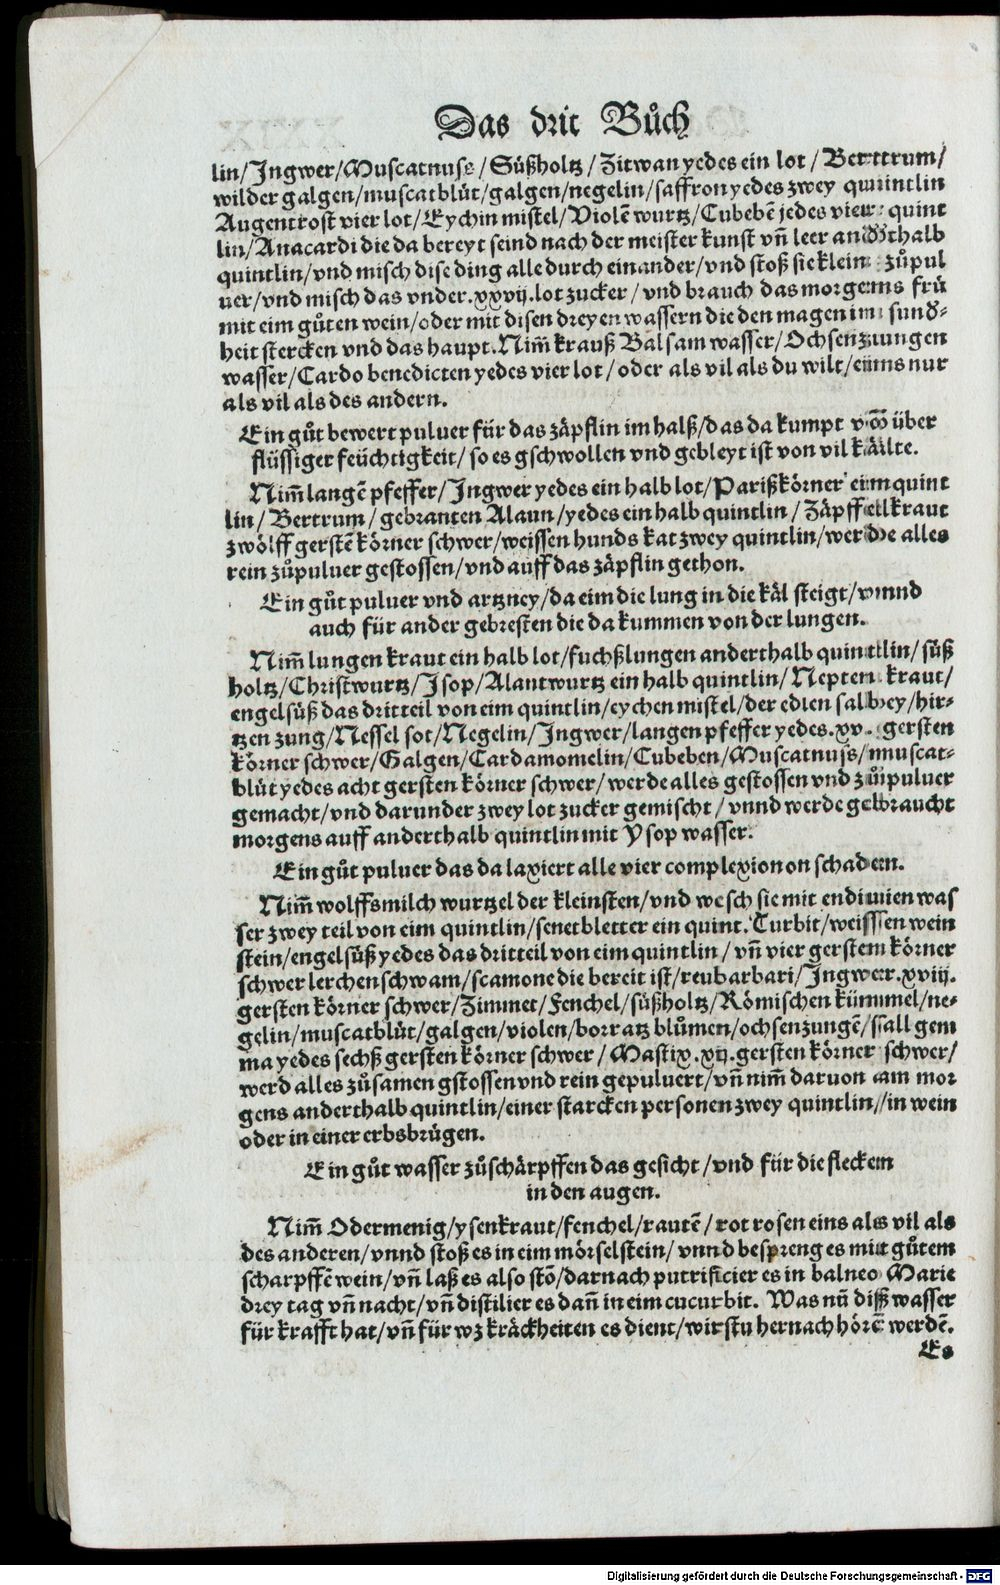 Das drit Bůch
lin/Jngwer/Muscatnuss/Süßholtz/Zitwan yedes ein lot/Berttrum/
wilder galgen/muscatblůt/galgen/negelin/saffron yedes zwey quintlin
Augentrost vier lot/Eychin mistel/Violē wurtz/Cubebē jedes vier quint
lin/Anacardi die da bereyt seind nach der meister kunst vñ leer anderthalb
quintlin/vnd misch dise ding alle durch einander/vnd stoß sie klein zůpul
uer/vnd misch das vnder.xxvij.lot zucker/vnd brauch das morgens frü
mit eim gůten wein/oder mit disen dreyen wassern die den magen im sund-
heit stercken vnd das haupt.Nim̃ krauß Balsam wasser/Ochsenzungen
wasser/Cardo benedicten yedes vier lot/oder als vil als du wilt/eins nur
als vil als des andern.
Ein gůt bewert puluer für das zäpflin im halß/das da kumpt vō über
flüssiger feüchtigkeit/so es gschwollen vnd gebleyt ist von vil kälte.
Nim̃ langē pfeffer/Jngwer yedes ein halb lot/Parißkörner ein quint
lin/Bertrum/gebranten Alaun/yedes ein halb quintlin/Zäpffelkraut
zwölff gerstē körner schwer/weissen hunds kat zwey quintlin/werde alles
rein zůpuluer gestossen/vnd auff das zäpflin gethon.
Ein gůt puluer vnd artzney/da eim die lung in die käl steigt/vnnd
auch für ander gebresten die da kummen von der lungen.
Nim̃ lungen kraut ein halb lot/fuchßlungen anderthalb quintlin/süß
holtz/Christwurtz/Jsop/Alantwurtz ein halb quintlin/Nepten kraut/
engelsüß das dritteil von eim quintlin/eychen mistel/der edlen salbey/hir-
tzen zung/Nessel sot/Negelin/Jngwer/langen pfeffer yedes.xv. gersten
körner schwer/Galgen/Cardamomelin/Cubeben/Muscatnuss/muscat-
blůt yedes acht gersten körner schwer/werde alles gestossen vnd zůpuluer
gemacht/vnd darunder zwey lot zucker gemischt/vnnd werde gebraucht
morgens auff anderthalb quintlin mit Ysop wasser.
Ein gůt puluer das da laxiert alle vier complexion on schaden.
Nim̃ wolffsmilch wurtzel der kleinsten/vnd wesch sie mit endiuien was
ser zwey teil von eim quintlin/senetbletter ein quint.Turbit/weissen wein
stein/engelsüß yedes das dritteil von eim quintlin/vñ vier gersten körner
schwer lerchenschwam/scamone die bereit ist/reubarbari/Jngwer.xviij.
gersten körner schwer/Zimmet/Fenchel/süßholtz/Römischen kümmel/ne-
gelin/muscatblůt/galgen/violen/borratz blůmen/ochsenzungē/sall gem
ma yedes sechß gersten körner schwer/Mastix.xij.gersten körner schwer/
werd alles zůsamen gstossen vnd rein gepuluert/vñ nim̃ daruon am mor
gens anderthalb quintlin/einer starcken personen zwey quintlin/in wein
oder in einer erbsbrügen.
Ein gůt wasser zůschärpffen das gesicht/vnd für die flecken
in den augen.
Nim̃ Odermenig/ysenkraut/fenchel/rautē/rot rosen eins als vil als
des anderen/vnnd stoß es in eim mörselstein/vnnd bespreng es mit gůtem
scharpffē wein/vñ laß es also stō/darnach putrificier es in balneo Marie
drey tag vñ nacht/vñ distilier es dañ in eim cucurbit. Was nũ diß wasser
für krafft hat/vñ für wz kräckheiten es dient/wirstu hernach hörē werdē.
Es
Digitalisierung gefördert durch die Deutsche Forschungsgemeinschaft - DFG